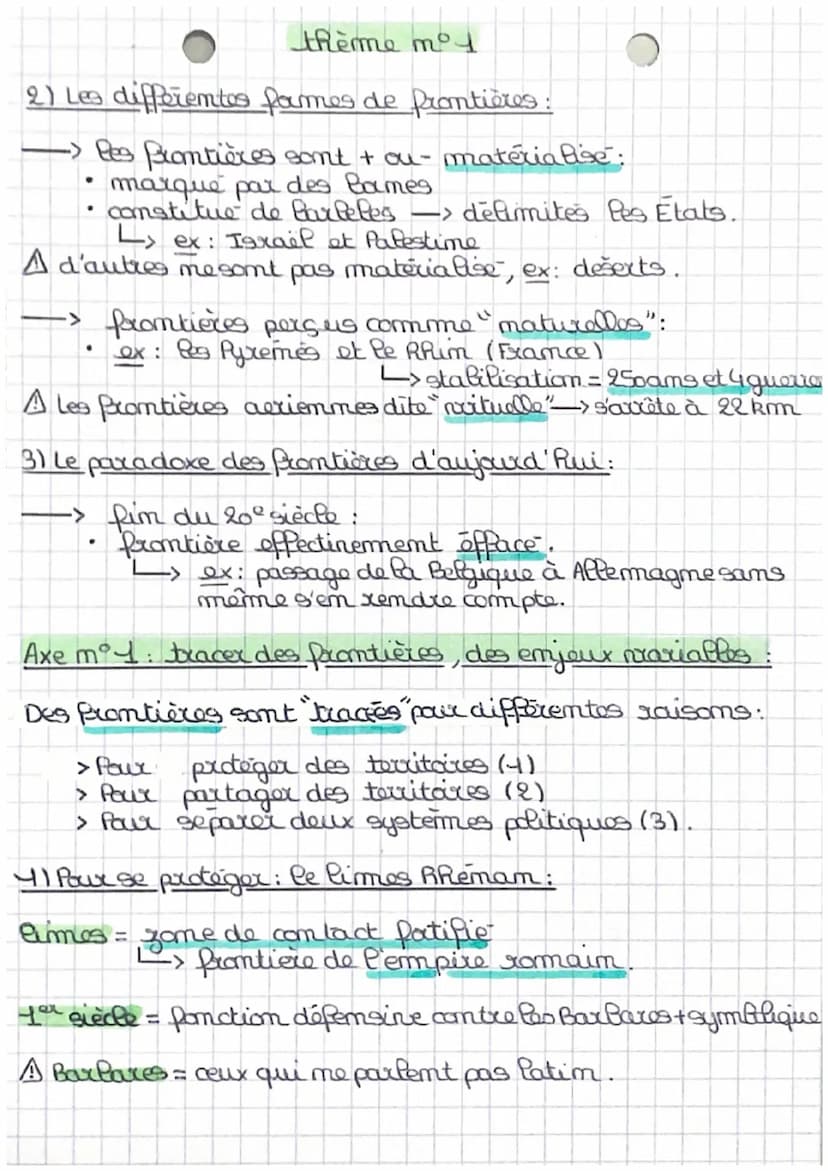 thème n°1
2) Les différentes formes de frontières :
—> les frontières sont + ou - matérialisé :
• marqué par des bornes
• constitué de barbelés —> délimités les États.
↳ ex : Israël et Palestine
⚠ d'autres ne sont pas matérialisé, ex : déserts.
—> frontières perçus comme "naturelles" :
• ex : les Pyrénés et le Rhin (France)
↳ stabilisation = 250ans et 4 guerre
⚠ Les frontières aeriennes dite "virtuelle" —> s'arrête à 22 km
3) Le paradoxe des frontières d'aujourd'hui :
—> fin du 20e siècle :
• frontière effectivement éfface.
↳ ex : passage de la Belgique à Allemagne sans
même s'en rendre compte.
Axe n°1 : tracer des frontières, des enjeux variables :
Des frontières sont "tracées" pour différentes raisons :
> Pour protéger des territoires (1)
> Pour partager des territoires (2)
> Pour séparer deux systèmes politiques (3).
1) Pour se protéger : le limes Rhénan :
limes = zone de contact fortifié
↳ frontière de l'empire romain.
1er siècle = fonction défensive contre les Barbares + symbolique
⚠ Barbares = ceux qui ne parlent pas latin.